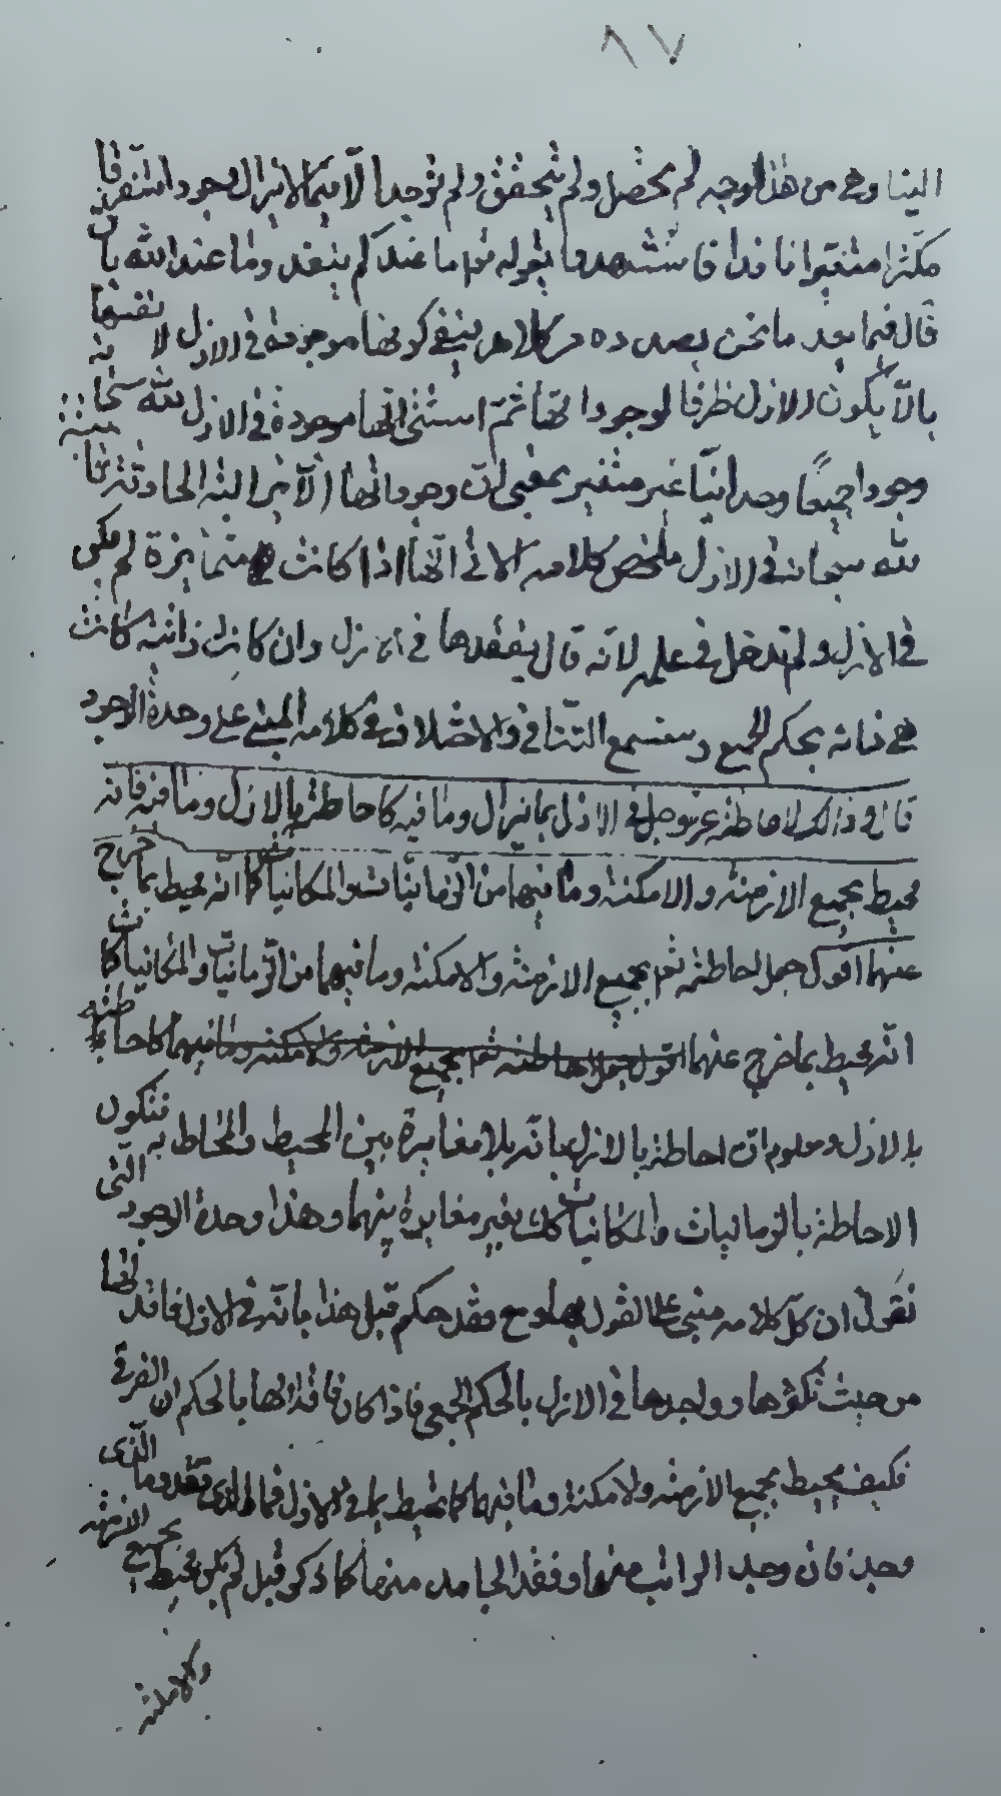 ٨٧
الينا وهى من هذا الوجه لم تحصل ولم تتحقق ولم توجد الا فيما لا يزال وجودا متفرقا
متكثرا متغيرا نافدا فاستشهد بقوله تع ما عندكم ينفد وما عند الله باق
قال فيما بعد ما نحن بصدده من كلامه ينفى كونها موجودة فى الازل لا نفسها
بالا يكون الازل ظرفا لوجوداتها ثم استثنى انها موجودة فى الازل لله سبحانه
وجودا جمعيا وحدانيا غير متغير بمعنى ان وجوداتها اللايزالية الحادثة ثابتة
لله سبحانه فى الازل ملخص كلامه الاتى انها اذا كانت متمايزة لم تكن
فى الازل ولم تدخل فى علمه لانه قال يفقدها فى الازل وان كانت ذاتية كانت
هى ذاته بحكم الجمع وستسمع التنافى والاختلاف فى كلامه المبنى على وحدة الوجود
قال وذلك لاحاطته عز وجل فى الازل بما لا يزال وما فيه كاحاطته بالازل وما فيه فانه
محيط بجميع الازمنة والامكنة وما فيهما من الزمانيات والمكانيات كما انه محيط بما خرج
عنهما اقول جعل احاطته تع بجميع الازمنة والامكنة وما فيهما من الزمانيات والمكانيات كما
انه محيط بما خرج عنهما اقول جعل احاطته تع بجميع الازمنة والامكنة وما فيهما كاحاطته
بالازل ومعلوم ان احاطته بالازل بذاته بلا مغايرة بين المحيط والمحاط به فتكون
الاحاطة بالزمانيات والمكانيات كك بغير مغايرة بينهما وهذا وحدة الوجود التى
نقول ان كل كلامه مبنى على القول بها ومع فقد حكم قبل هذا بانه فى الازل فاقد لها
من حيث تكثرها وواجدها فى الازل بالحكم الجمعى فاذا كان فاقدا لها بالحكم الفرقى
فكيف يحيط بجميع الازمنة والامكنة وما فيهما كما يحيط بما فى الازل فما الذى فقد وما الذى
وجد فان وجد الراتب منها وفقد الجامد منها كما ذكر قبل لم يكن محيطا بجميع الازمنة
والامكنة